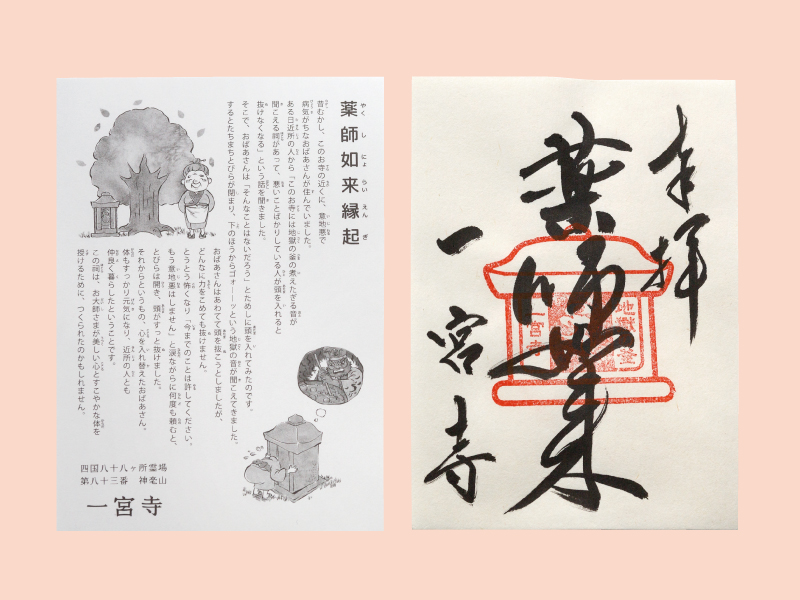 薬師如来縁起
やくしにょらいえんぎ
昔むかし、このお寺の近くに、意地悪で
病気がちなおばあさんが住んでいました。
ある日近所の人から「このお寺には地獄の釜の煮えたぎる音が
聞こえる祠があって、悪いことばかりしている人が頭を入れると
抜けなくなる」という話を聞きました。
そこで、おばあさんは「そんなことはないだろう」とためしに頭を入れてみたのです。
するとたちまちとびらが閉まり、下のほうからゴォーーッという地獄の音が聞こえてきました。
おばあさんはあわてて頭を抜こうとしましたが、
どんなに力をこめても抜けません。
とうとう怖くなり「今までのことは許してください。
もう意地悪はしません」と涙ながらに何度も頼むと、
とびらは開き、頭がすっと抜けました。
それからというもの、心を入れ替えたおばあさん。
体もすっかり元気になり、近所の人とも
仲良く暮らしたということです。
この祠は、お大師さまが美しい心とすこやかな体を
授けるために、つくられたのかもしれません。
四国八十八ヶ所霊場
第八十三番 神毫山
一宮寺
奉拝
薬師如来
一宮寺
地獄釜
一宮寺